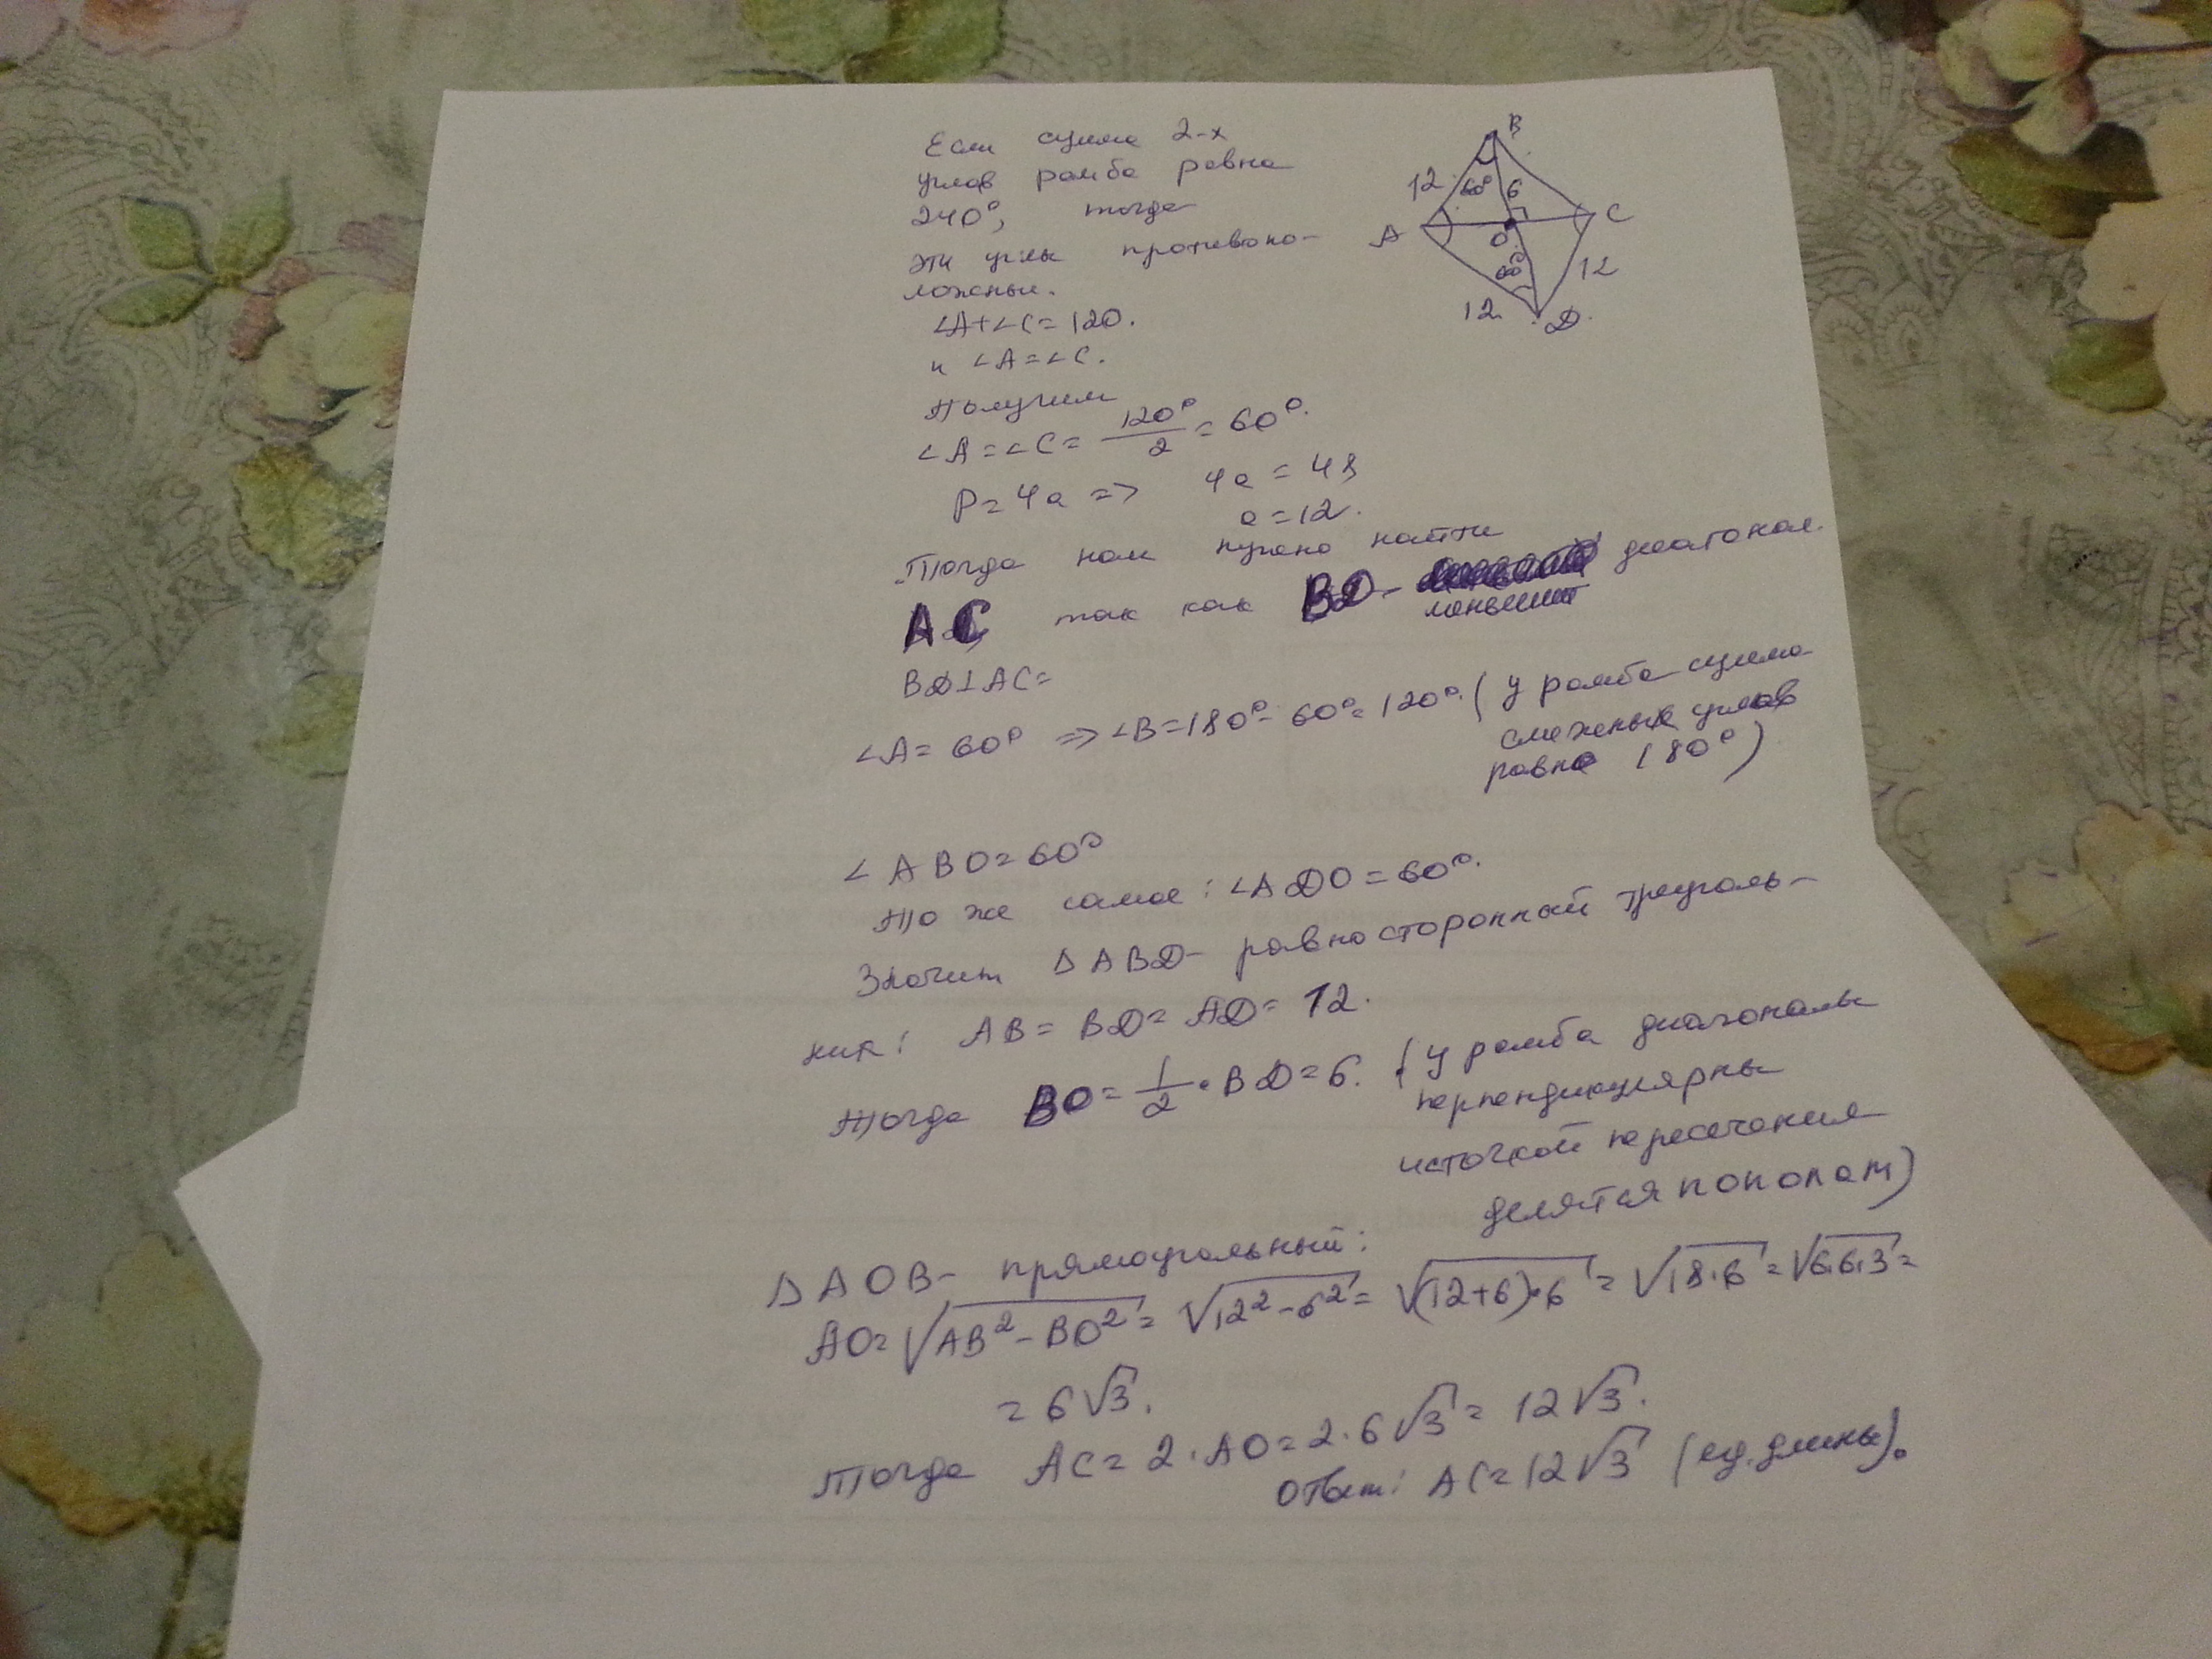 Если сумма 2-х
углов ромба равна
240°, тогда
эти углы противопо-
ложные.
∠A+∠C=120.
и ∠A=∠C.
Получим
∠A=∠C= 120°/2 = 60°.
P=4a => 4a = 48
a=12.
Тогда нам нужно найти
AC так как BD- диагонал.
меньшая
BD⊥AC=
∠A= 60° => ∠B=180°-60°=120°. (у ромба сумма
смежных углов
равна 180°)
∠ABO=60°
То же самое: ∠ADO=60°.
Значит ΔABD- равносторонний треуголь-
ник: AB=BD=AD=12.
Тогда BO= 1/2 · BD=6. (у ромба диагональ
перпендикулярны
и точкой пересечения
делятся пополам)
ΔAOB- прямоугольный:
AO=√AB²-BO² = √12²-6² = √(12+6)·6 = √18·6 = √6·6·3 =
= 6√3.
Тогда AC=2·AO=2·6√3 = 12√3.
Ответ: AC=12√3 (ед. длины).
B
12
60°
6
A
O
C
60°
12
12
D